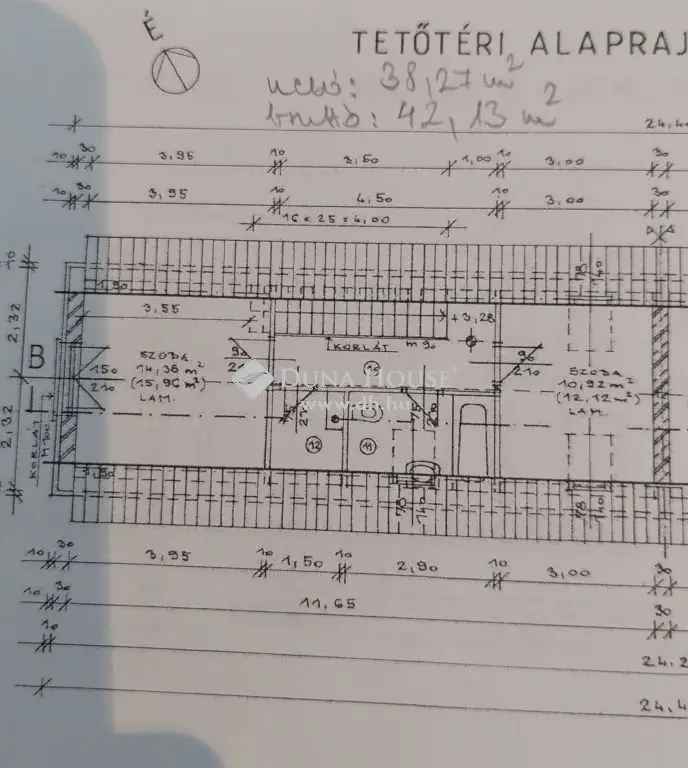 É
TETŐTÉRI ALAPRAJ
nettó: 38,27 m²
bruttó: 42,13 m²
24,4
10 30 3,95 10 3,50 1,00 10 3,00 30
10 30 3,95 10 4,50 10 3,00 30
16 x 25 = 4,00
A A
10
78 140
1,90
3,55
+ 3,28
2,32
KORLÁT m 90
B
SZOBA
14,36 m²
(15,96 m²)
LAM.
150
210
90
210
10
90
210
SZOBA
10,92 m²
(12,12 m²)
LAM.
DUNA HOUSE
www.dh.hu
75
210
75
210
2,32
KORLÁT
12
11
1,90
78 140
78 140
10 30 3,95 10 1,50 10 2,90 10 3,00 30
10 30 11,65 30
10 24,2
24,4